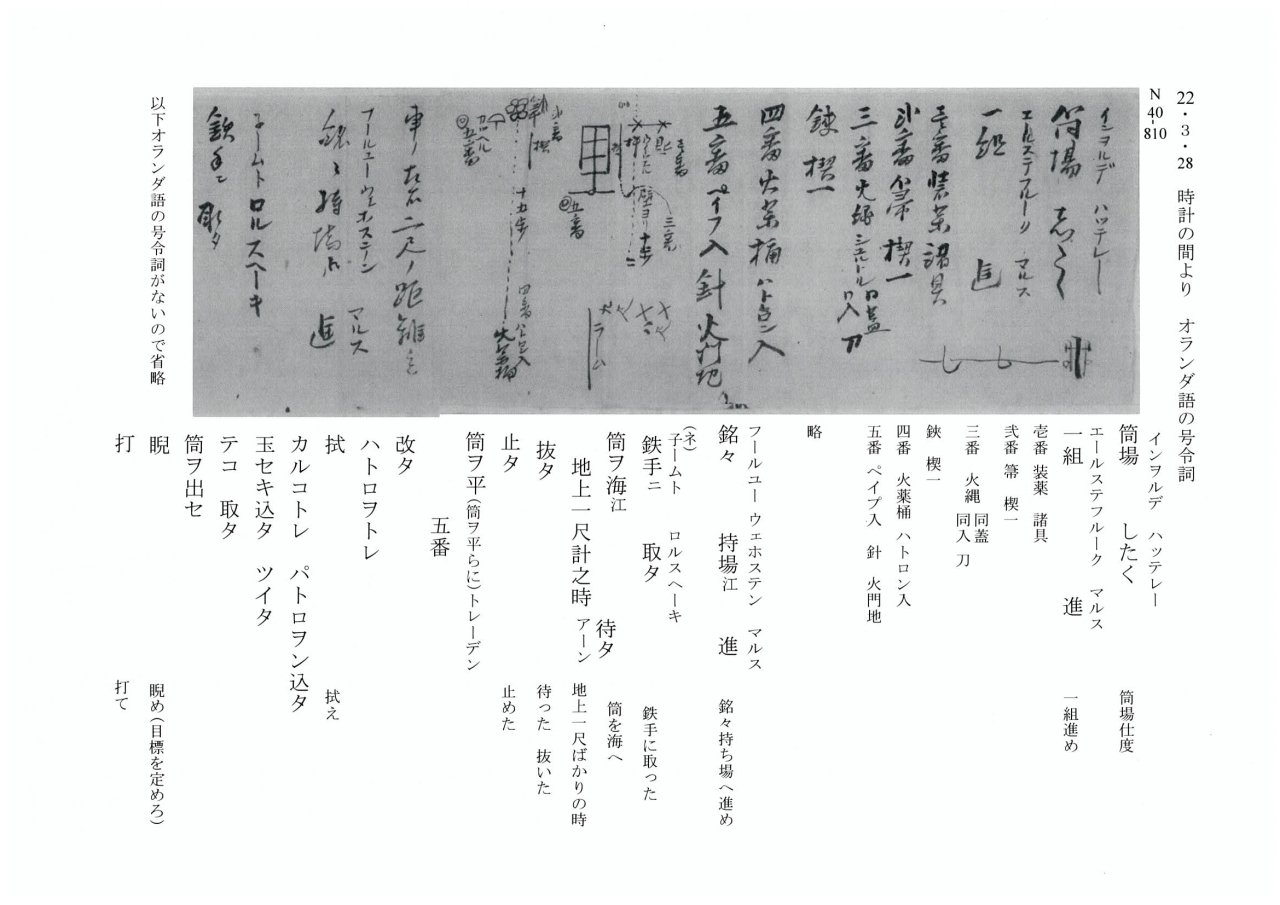 22・3・28 時計の間より オランダ語の号令詞
N40-810
インヲルデ ハッテレー
筒場 したく
エールステフルーク マルス
一組 進
壱番装薬諸具
弐番箒楔一
三番火縄 同蓋 同入 刀
鋏楔一
四番火薬桶ハトロン入
五番ペイフ入針火門地
壱番
三番
壁ヨリ十歩
五番
弐番
楔
十五歩
四番
五番
車ノ左右二尺ノ距離
フールユーウェホステン マルス
銘々持場江 進
子ームトロルスヘーキ
鉄手ニ取タ
以下オランダ語の号令詞がないので省略
インヲルデ ハッテレー
筒場 したく 筒場仕度
エールステフルーク マルス
一組 進 一組進め
壱番 装薬 諸具
弐番 箒 楔一
三番 火縄 同蓋 同入 刀
鋏 楔一
四番 火薬桶 ハトロン入
五番 ペイプ入 針 火門地
略
フールユー ウェホステン マルス
銘々 持場江 進 銘々持ち場へ進め
(ネ)
子ームト ロルスヘーキ
鉄手ニ 取タ 鉄手に取った
筒ヲ海江 待タ 筒を海へ
地上一尺計之時 アーン 地上一尺ばかりの時
抜タ 待った 抜いた
止タ 止めた
筒ヲ平(筒ヲ平らに)トレーデン
五番
改タ
ハトロヲトレ
拭 拭え
カルコトレ パトロヲン込タ
玉セキ込タ ツイタ
テコ 取タ
筒ヲ出セ
睨 睨め(目標を定めろ)
打 打て